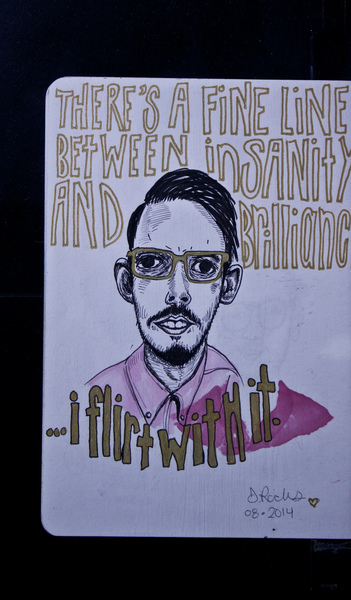 THERE'S A FINE LINE
BETWEEN inSANitY
AND Brillianc
...i flirt with it.
08.2014